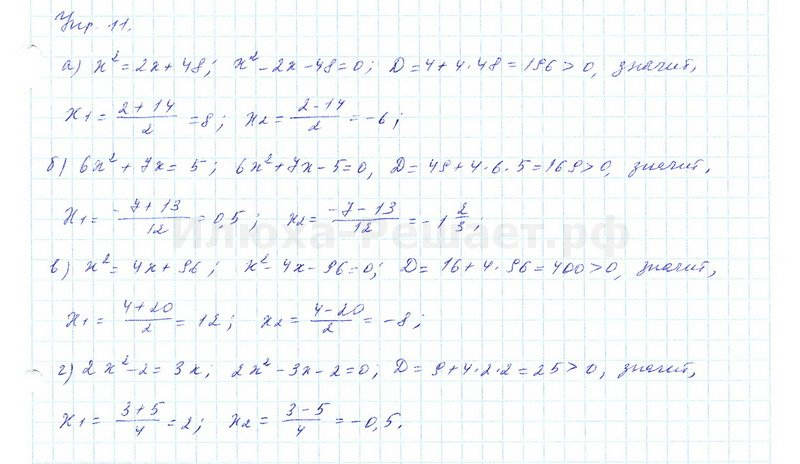 Упр. 11.
а) x² = 2x + 48; x² - 2x - 48 = 0; D = 4 + 4·48 = 196 > 0, значит,
x1 = (2 + 14)/2 = 8; x2 = (2 - 14)/2 = -6;
б) 6x² + 7x = 5; 6x² + 7x - 5 = 0, D = 49 + 4·6·5 = 169 > 0, значит,
x1 = (-7 + 13)/12 = 0,5; x2 = (-7 - 13)/12 = -1 2/3;
Илюха-Решает.рф
в) x² = 4x + 96; x² - 4x - 96 = 0; D = 16 + 4·96 = 400 > 0, значит,
x1 = (4 + 20)/2 = 12; x2 = (4 - 20)/2 = -8;
г) 2x² - 2 = 3x; 2x² - 3x - 2 = 0; D = 9 + 4·2·2 = 25 > 0, значит,
x1 = (3 + 5)/4 = 2; x2 = (3 - 5)/4 = -0,5.